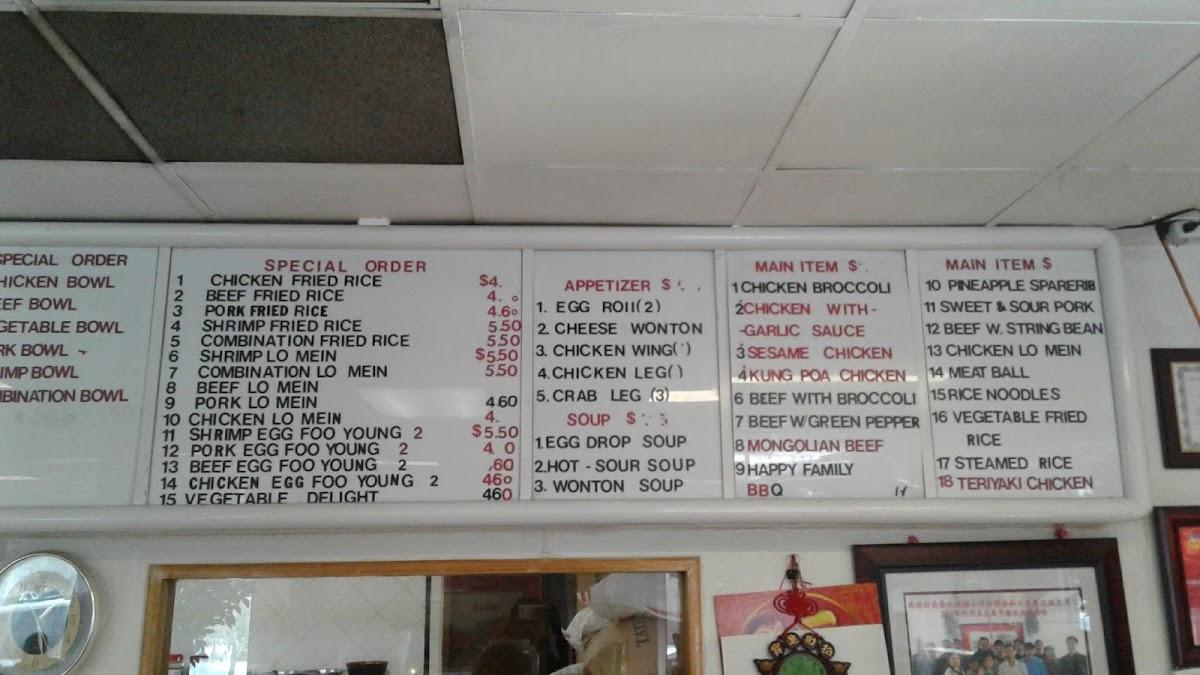 SPECIAL ORDER
CHICKEN BOWL
BEEF BOWL
VEGETABLE BOWL
PORK BOWL
SHRIMP BOWL
COMBINATION BOWL
SPECIAL ORDER
1 CHICKEN FRIED RICE $4.
2 BEEF FRIED RICE 4. 0
3 PORK FRIED RICE 4.60
4 SHRIMP FRIED RICE 5.50
5 COMBINATION FRIED RICE 5.50
6 SHRIMP LO MEIN $5.50
7 COMBINATION LO MEIN 5.50
8 BEEF LO MEIN
9 PORK LO MEIN 460
10 CHICKEN LO MEIN 4.
11 SHRIMP EGG FOO YOUNG 2 $5.50
12 PORK EGG FOO YOUNG 2 4. 0
13 BEEF EGG FOO YOUNG 2 .60
14 CHICKEN EGG FOO YOUNG 2 460
15 VEGETABLE DELIGHT 460
APPETIZER $
1. EGG ROII(2)
2. CHEESE WONTON
3. CHICKEN WING( )
4. CHICKEN LEG( )
5. CRAB LEG (3)
SOUP $ 5
1.EGG DROP SOUP
2.HOT - SOUR SOUP
3. WONTON SOUP
MAIN ITEM $
1 CHICKEN BROCCOLI
2 CHICKEN WITH-
-GARLIC SAUCE
3 SESAME CHICKEN
4 KUNG POA CHICKEN
6 BEEF WITH BROCCOLI
7 BEEF W/GREEN PEPPER
8 MONGOLIAN BEEF
9 HAPPY FAMILY
BBQ
MAIN ITEM $
10 PINEAPPLE SPARERIB
11 SWEET & SOUR PORK
12 BEEF W. STRING BEAN
13 CHICKEN LO MEIN
14 MEAT BALL
15 RICE NOODLES
16 VEGETABLE FRIED
RICE
17 STEAMED RICE
18 TERIYAKI CHICKEN